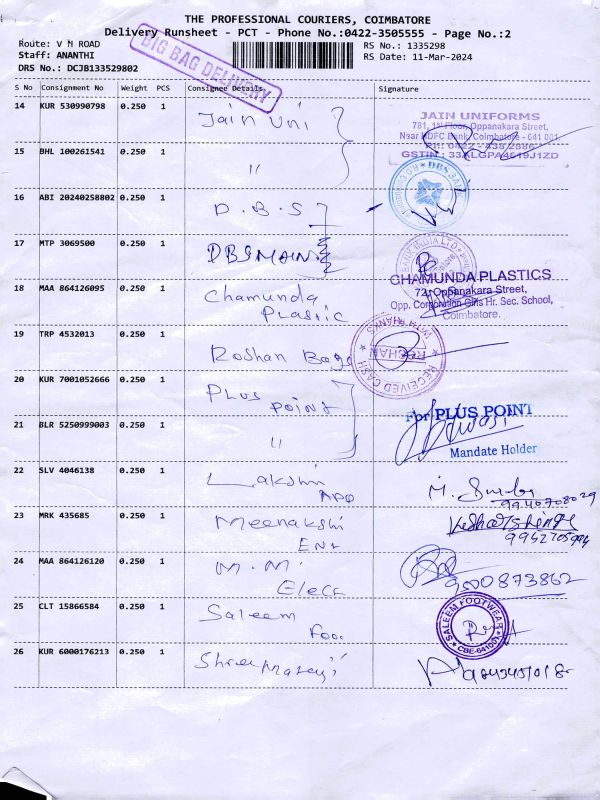 THE PROFESSIONAL COURIERS, COIMBATORE
Delivery Runsheet - PCT - Phone No.:0422-3505555 - Page No.:2
Route: V H ROAD
Staff: ANANTHI
DRS No.: DCJB133529802
BIG BAG DELIVERY
RS No.: 1335298
RS Date: 11-Mar-2024
S No Consignment No Weight PCS Consignee Details Signature
14 KUR 530990798 0.250 1 Jain Uni
JAIN UNIFORMS
781, 1st Floor, Oppanakara Street,
Near HDFC Bank, Coimbatore - 641 001
PH: 0422 - 438 2886
15 BHL 100261541 0.250 1 "
16 ABI 20240258802 0.250 1 D.B.S
17 MTP 3069500 0.250 1 DBS MAIN.
18 MAA 864126095 0.250 1 Chamunda
Plastic
CHAMUNDA PLASTICS
72, Oppanakara Street,
Opp. Corporation Girls Hr. Sec. School,
Coimbatore.
19 TRP 4532013 0.250 1 Roshan Bags
RECEIVED CASH WITH THANKS
ROSHAN
20 KUR 7001052666 0.250 1 Plus
Point
For PLUS POINT
21 BLR 5250999003 0.250 1 "
Mandate Holder
22 SLV 4046138 0.250 1 Lakshmi
APP
9940708029
23 MRK 435685 0.250 1 Meenakshi
Ent
24 MAA 864126120 0.250 1 M.M.
Elect
25 CLT 15866584 0.250 1 Saleem
Foo
SALEEM FOOTWEAR
CBE-641001
26 KUR 6000176213 0.250 1